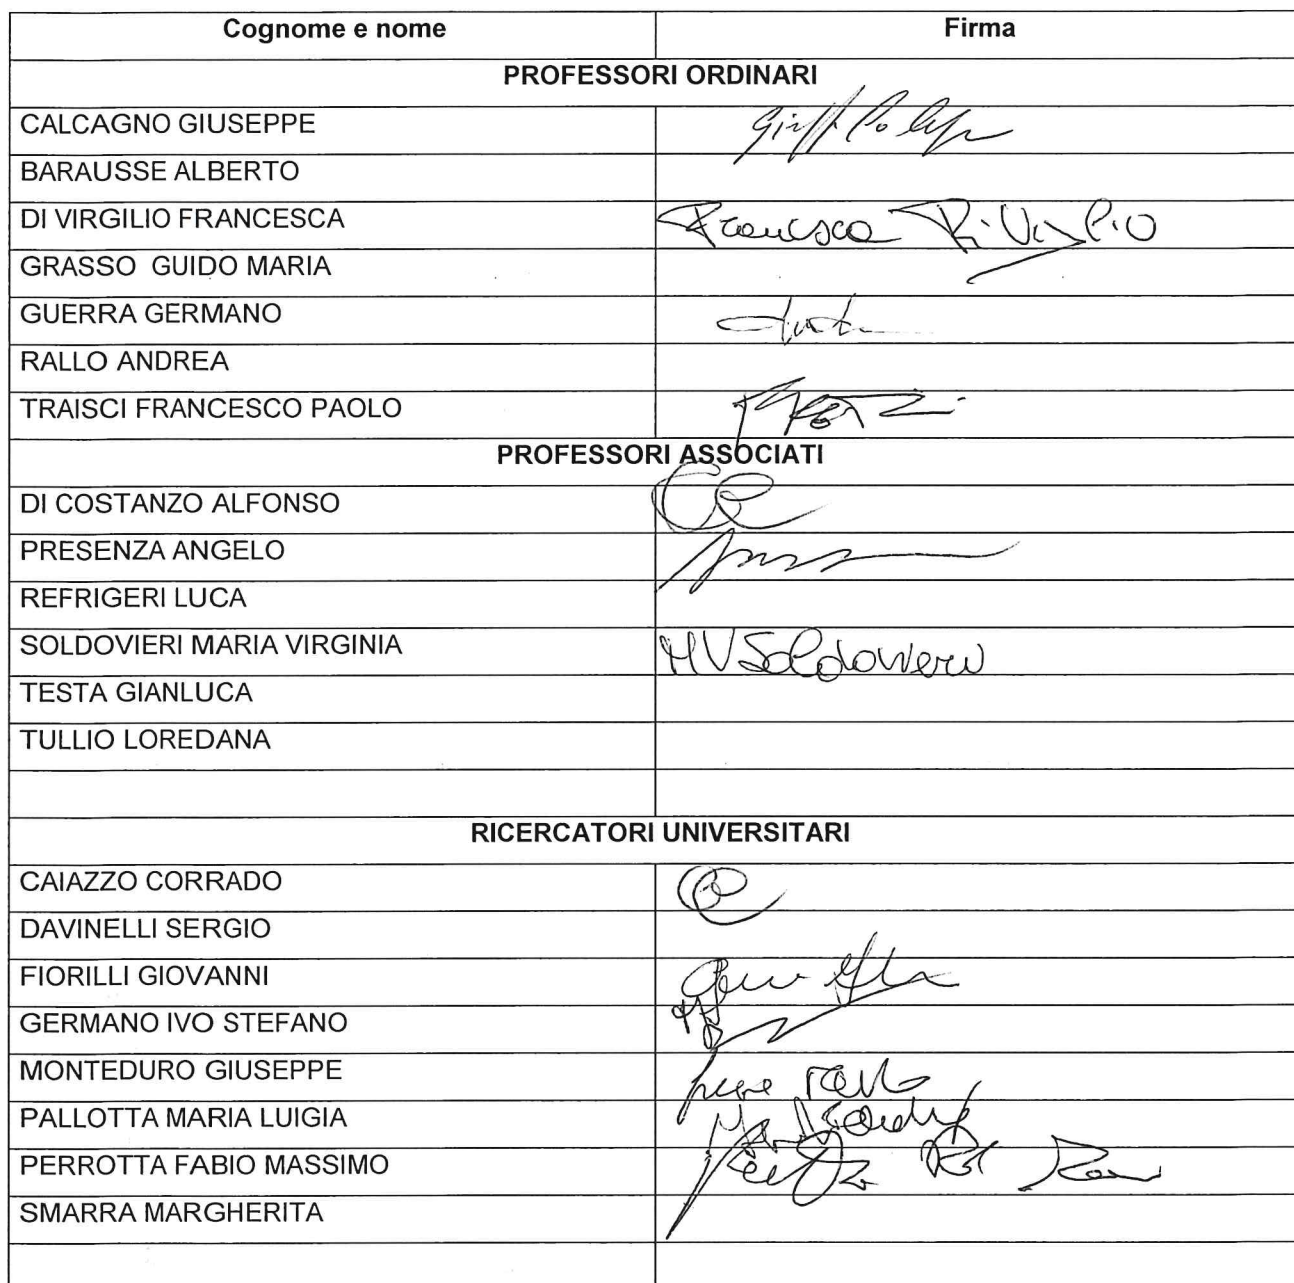 Cognome e nome Firma
PROFESSORI ORDINARI
CALCAGNO GIUSEPPE
BARAUSSE ALBERTO
DI VIRGILIO FRANCESCA Francesca Di Virgilio
GRASSO GUIDO MARIA
GUERRA GERMANO
RALLO ANDREA
TRAISCI FRANCESCO PAOLO
PROFESSORI ASSOCIATI
DI COSTANZO ALFONSO
PRESENZA ANGELO
REFRIGERI LUCA
SOLDOVIERI MARIA VIRGINIA MVSoldovieri
TESTA GIANLUCA
TULLIO LOREDANA
RICERCATORI UNIVERSITARI
CAIAZZO CORRADO
DAVINELLI SERGIO
FIORILLI GIOVANNI
GERMANO IVO STEFANO
MONTEDURO GIUSEPPE
PALLOTTA MARIA LUIGIA
PERROTTA FABIO MASSIMO
SMARRA MARGHERITA